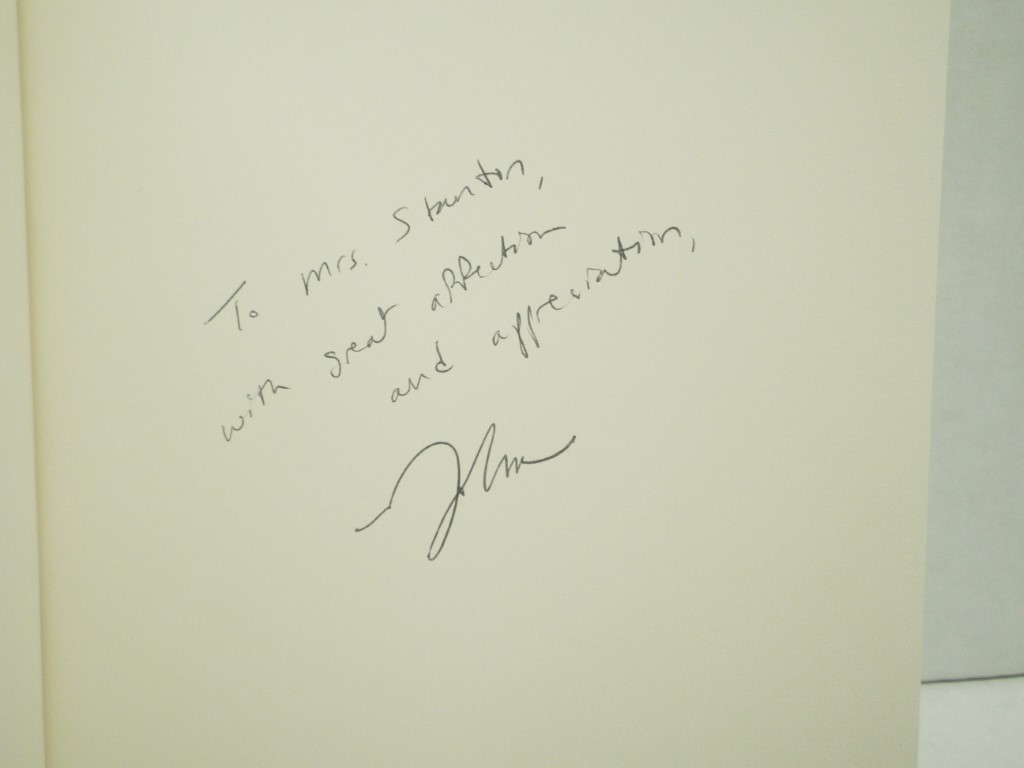 To Mrs. Stanton,
with great affection
and appreciation,
John